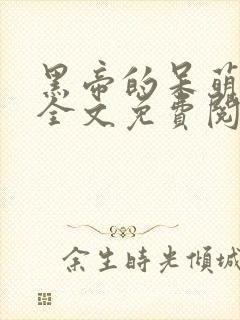 黑帝的呆萌
全文免費閱
余生時光傾城